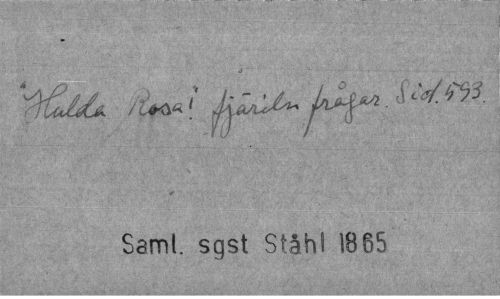 "Hulda Rosa! fjäriln frågar. Sid. 593.
Saml. sgst Ståhl 1865